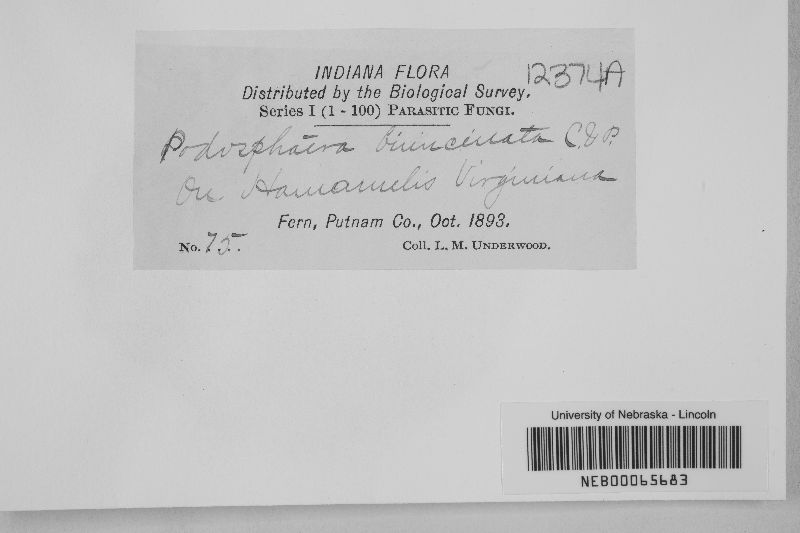 INDIANA FLORA 12374A
Distributed by the Biological Survey.
Series I (1 - 100) PARASITIC FUNGI.
Podosphaera biuncinata C. & P.
On Hamamelis Virginiana
Fern, Putnam Co., Oct. 1893.
No. 75. Coll. L. M. UNDERWOOD.
University of Nebraska - Lincoln
NEB00065683